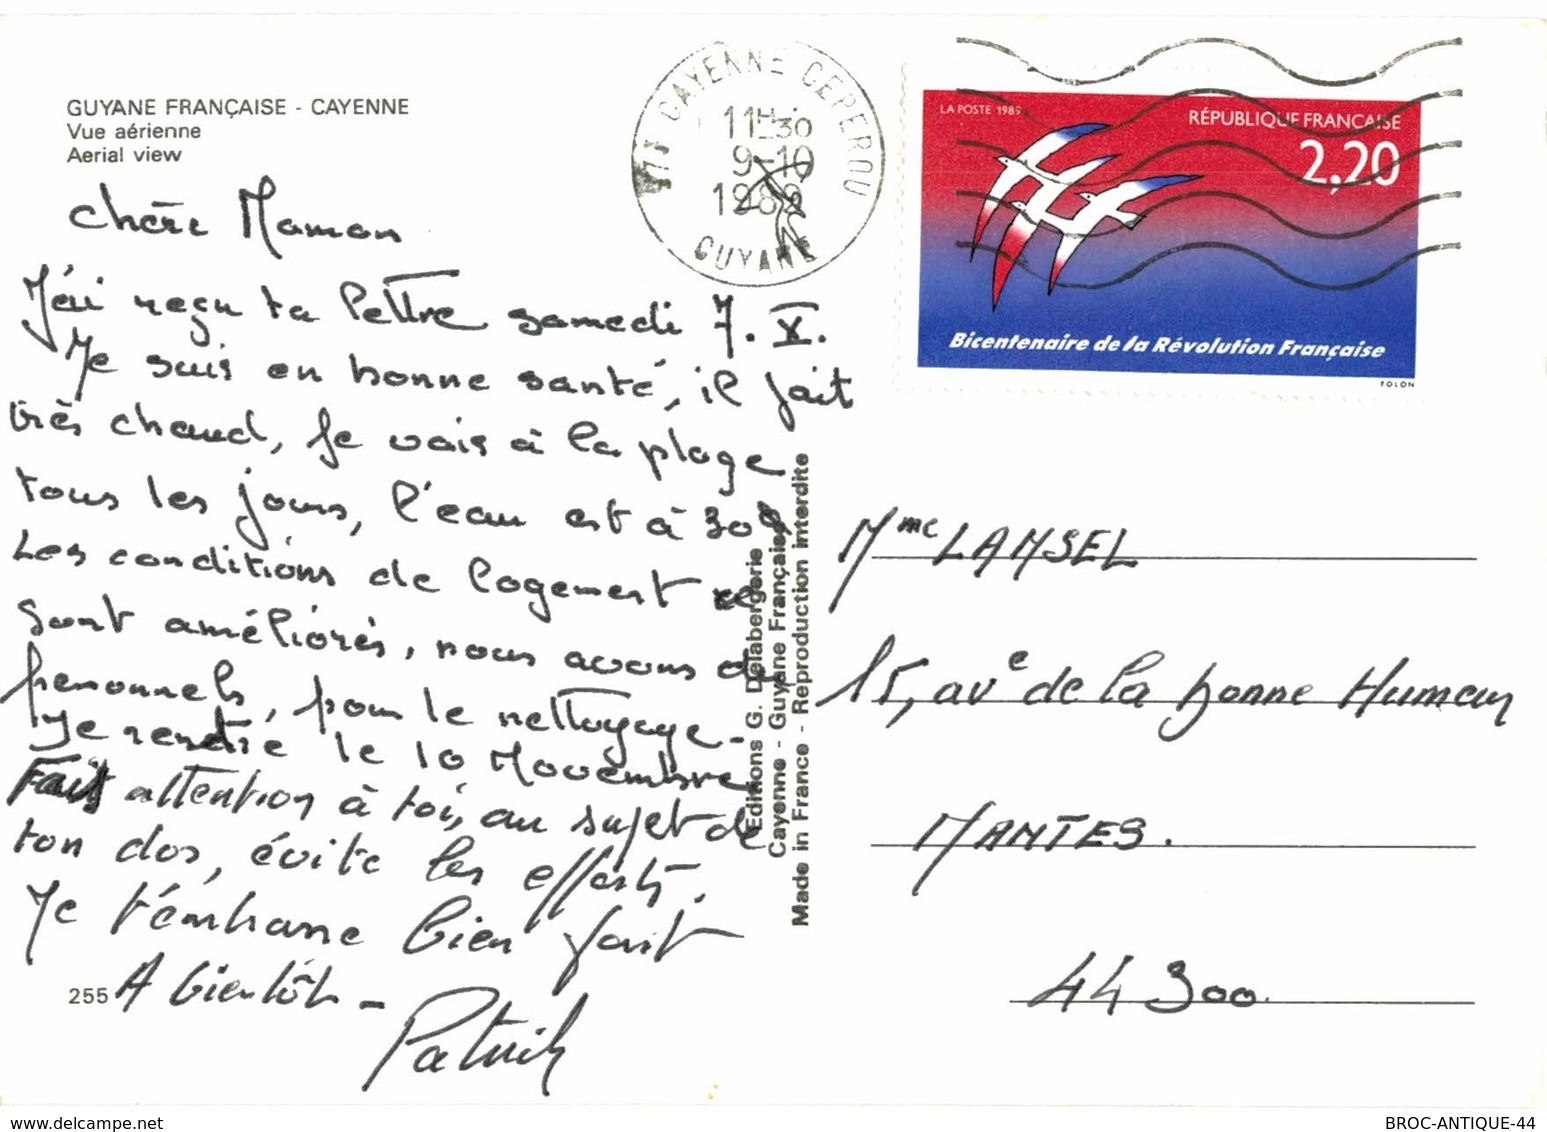 GUYANE FRANÇAISE - CAYENNE
Vue aérienne
Aerial view
Chère Maman
J'ai reçu ta lettre samedi 7. X.
Je suis en bonne santé, il fait
très chaud, je vais à la plage
tous les jours, l'eau est à 30°
Les conditions de logement
sont améliorés, nous avons du
personnels, pour le nettoyage.
Je rentre le 10 Novembre
Fait attention à toi, au sujet de
ton dos, évite les efforts.
Je t'embrasse bien fort
A bientôt -
Patrick
255
CAYENNE CEPEROU
11H-30
9-10
1989
GUYANE
LA POSTE 1989
RÉPUBLIQUE FRANÇAISE
2,20
Bicentenaire de la Révolution Française
FOLON
Editions G. Delabergerie
Cayenne - Guyane Française
Made in France - Reproduction interdite
Mme LAMSEL
15, ave de la bonne Humeur
NANTES.
44 300.
delcampe.net
BROC-ANTIQUE-44